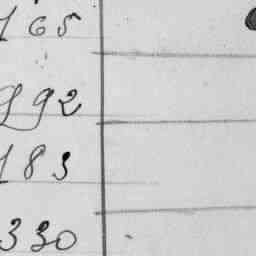 165
992
183
330